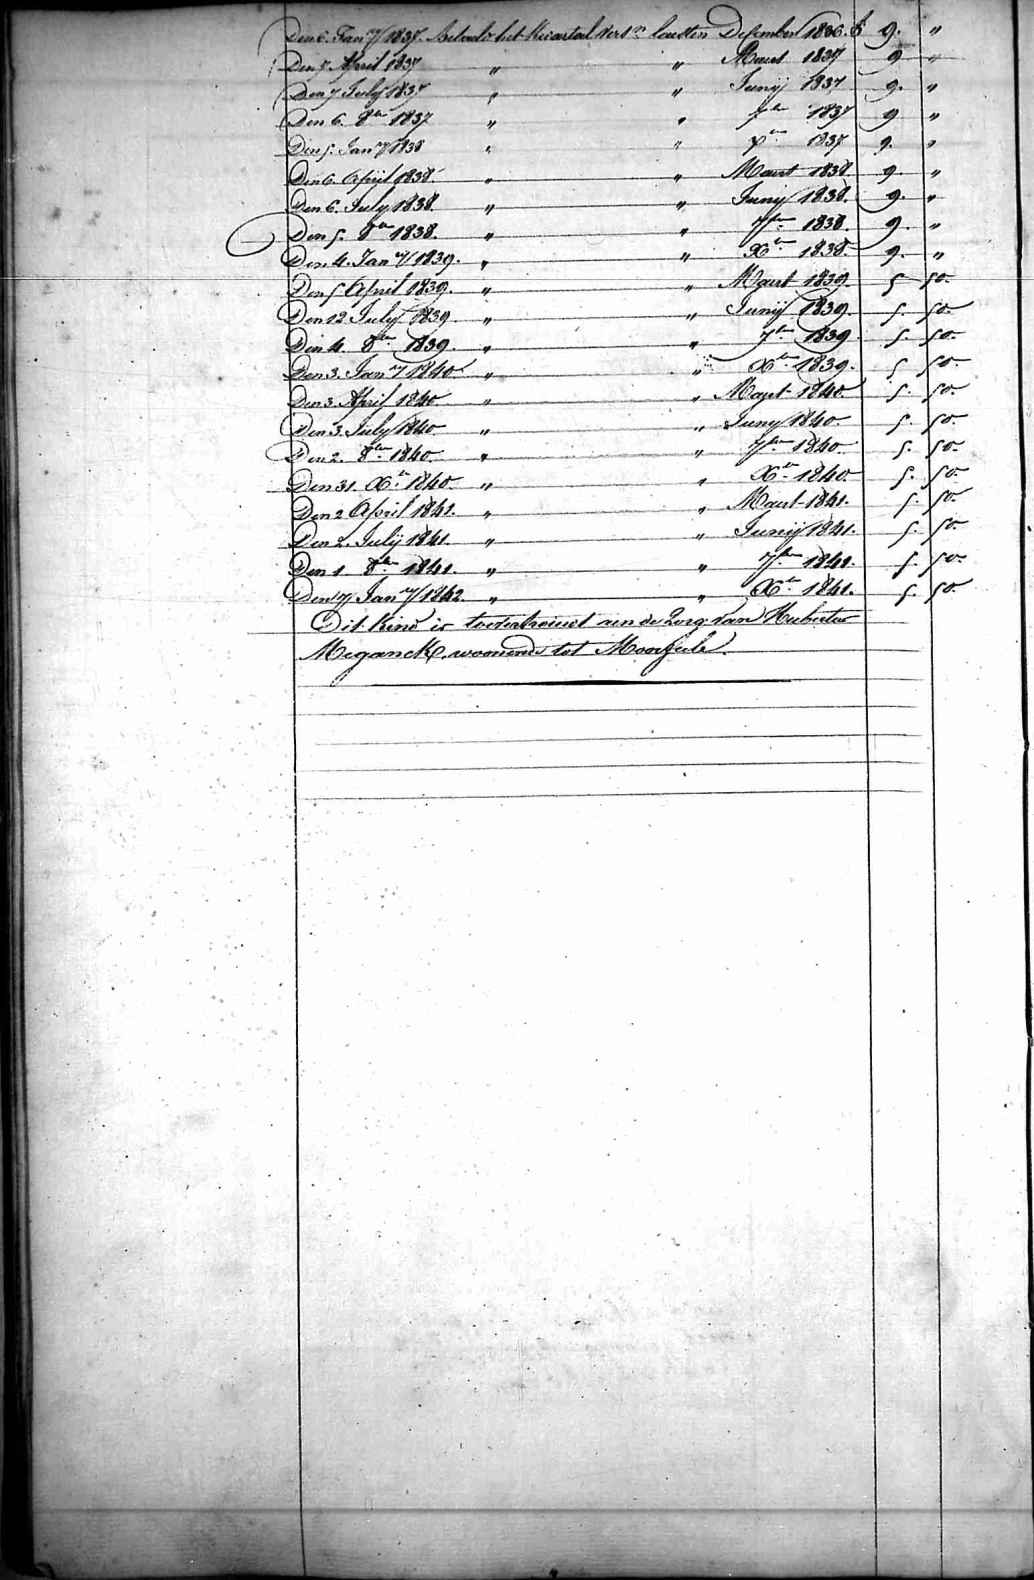 Den 6. Jan.ry 1837. Betaald het Kwartaal vers.n lauden December 1836. f 9. "
Den 7. April 1837 " " Maart 1837 9 "
Den 7 July 1837 " " Junij 1837 9. "
Den 6. 8ber 1837 " " 7ber 1837 9 "
Den 5. Jan.ry 1838 " " Xber 1837 9. "
Den 6. April 1838. " " Maart 1838 9. "
Den 6. July 1838. " " Junij 1838. 9. "
Den 5. 8ber 1838. " " 7ber 1838. 9. "
Den 4. Jan.ry 1839. " " Xber 1838. 9. "
Den 5 April 1839. " " Maart 1839. 5 50.
Den 12 July 1839. " " Junij 1839. 5. 50.
Den 4. 8ber 1839. " " 7ber 1839 5. 50.
Den 3. Jan.ry 1840 " " Xber 1839. 5 50.
Den 3. April 1840. " " Maart 1840. 5. 50.
Den 3. July 1840. " " Juny 1840. 5. 50.
Den 2. 8ber 1840. " " 7ber 1840. 5. 50.
Den 31. Xber 1840. " " Xber 1840. 5. 50.
Den 2 April 1841. " " Maart 1841. 5. 50.
Den 2. Julij 1841. " " Junij 1841. 5. 50.
Den 1 8ber 1841. " " 7ber 1841. 5. 50.
Den 7 Jan.ry 1842. " " Xber 1841. 5. 50.
Dit Kind is toevertrouwt aen de Zorg van
Meganck, woonende tot Moorsele.